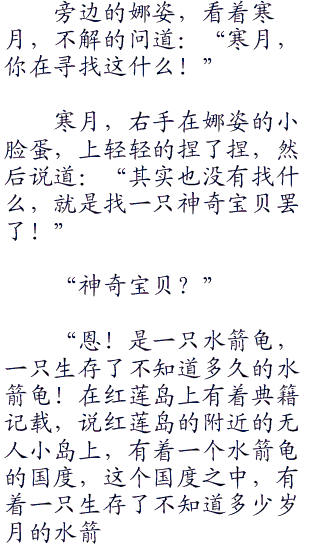 旁边的娜姿，看着寒
月，不解的问道：“寒月，
你在寻找这什么！”
寒月，右手在娜姿的小
脸蛋，上轻轻的捏了捏，然
后说道：“其实也没有找什
么，就是找一只神奇宝贝罢
了！”
“神奇宝贝？”
“恩！是一只水箭龟，
一只生存了不知道多久的水
箭龟！在红莲岛上有着典籍
记载，说红莲岛的附近的无
人小岛上，有着一个水箭龟
的国度，这个国度之中，有
着一只生存了不知道多少岁
月的水箭